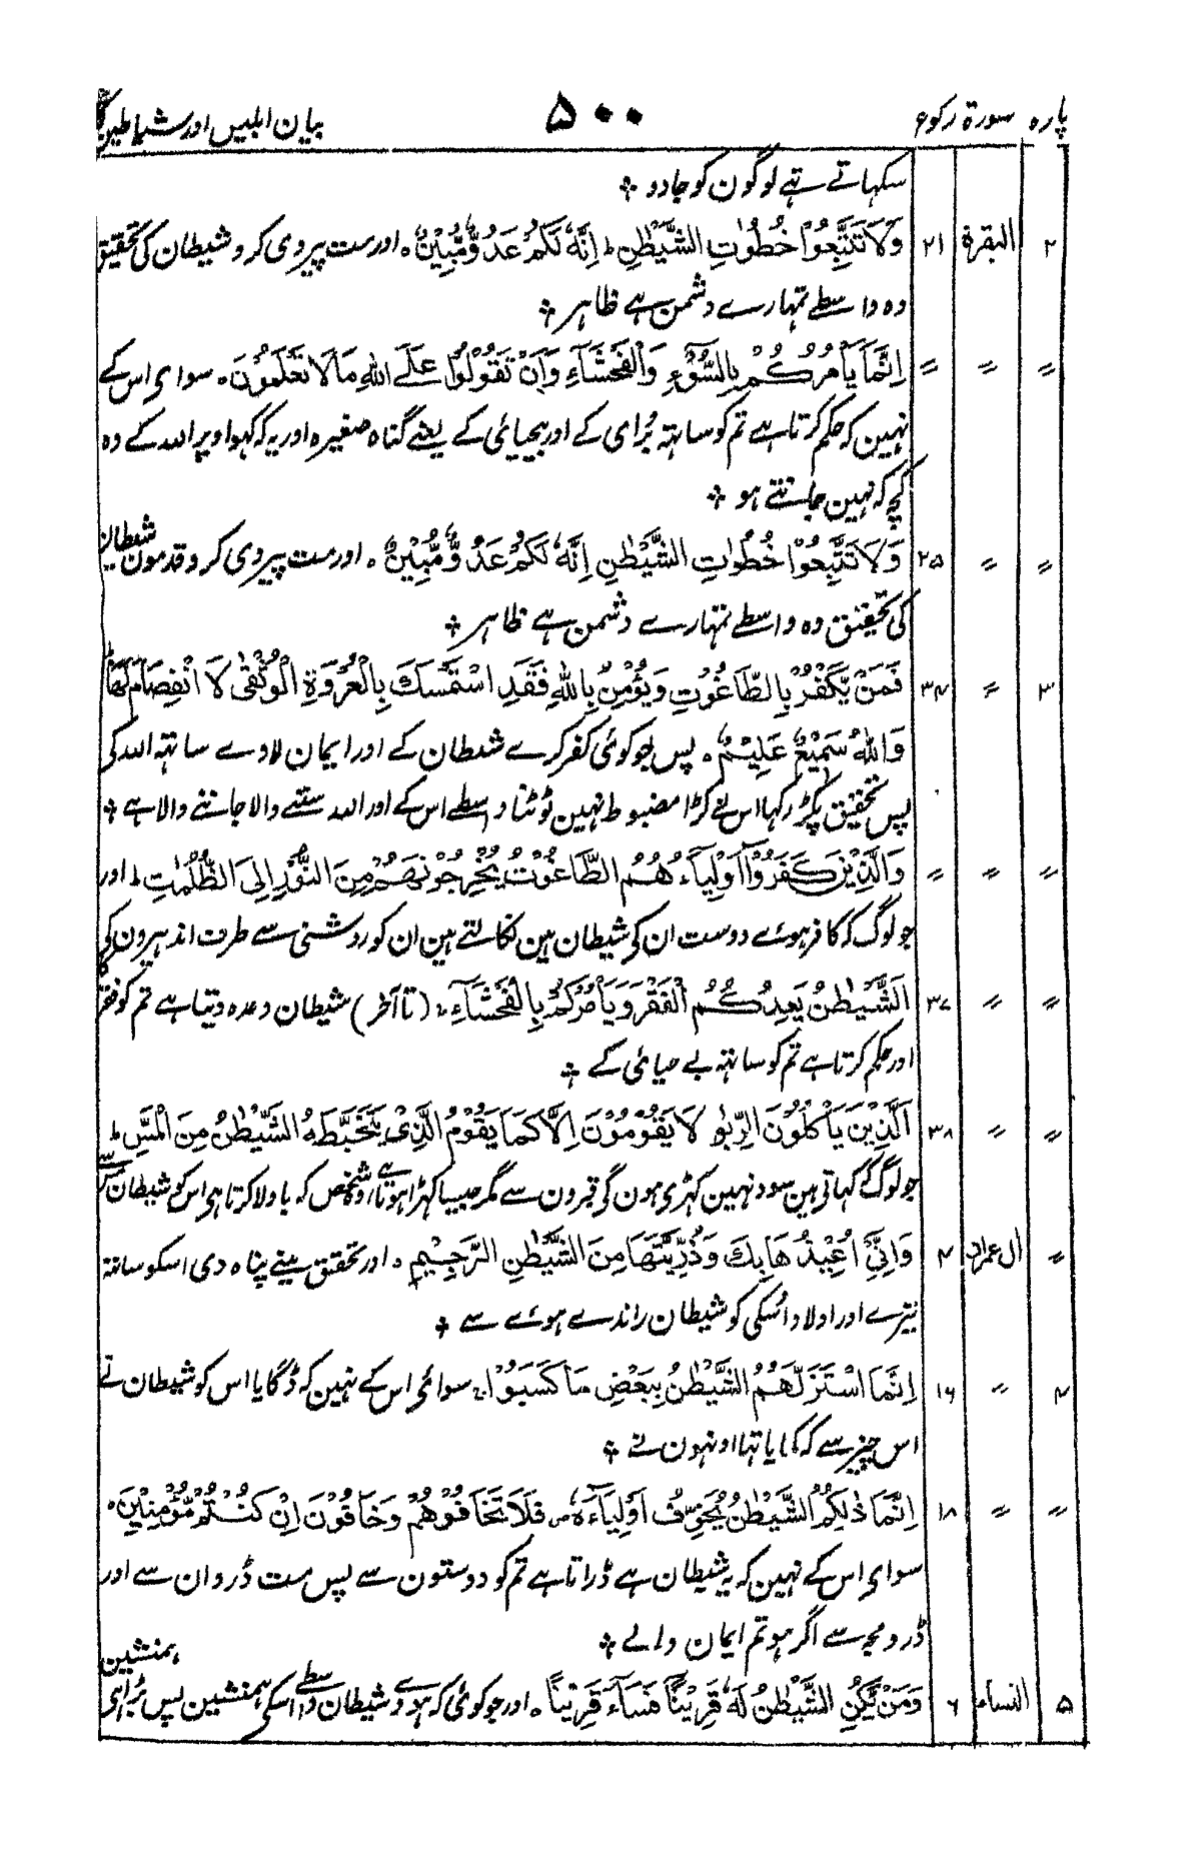 پارہ سورۃ رکوع ۵۰۰ بیان ابلیس اور شیاطین کا
سکہاتے تہے لوگون کو جادو ؞
۲ البقرۃ ۲۱ وَلَا تَتَّبِعُوْا خُطُوٰتِ الشَّيْطٰنِ ط اِنَّهٗ لَكُمْ عَدُوٌّ مُّبِيْنٌ ہ اور مت پیروی کرو شیطان کی تحقیق
وہ واسطے تمہارے دشمن ہے ظاہر ؞
〃 〃 〃 اِنَّمَا يَاْمُرُكُمْ بِالسُّوْٓءِ وَالْفَحْشَآءِ وَاَنْ تَقُوْلُوْا عَلَے اللهِ مَا لَا تَعْلَمُوْنَ ہ سوای اس کے
نہین کہ حکم کرتا ہے تم کو ساتہہ بُرای کے اور بیحیائی کے یعنے گناہ صغیرہ اور یہ کہ کہو اوپر اللہ کے وہ
کچہ کہ نہین جانتے ہو ؞
〃 〃 ۲۵ وَلَا تَتَّبِعُوْا خُطُوٰتِ الشَّيْطٰنِ اِنَّهٗ لَكُمْ عَدُوٌّ مُّبِيْنٌ ہ اور مت پیروی کرو قدمون شیطان
کی تحقیق وہ واسطے تمہارے دشمن ہے ظاہر ؞
۳ 〃 ۳۴ فَمَنْ يَّكْفُرْ بِالطَّاغُوْتِ وَيُؤْمِنْ بِاللهِ فَقَدِ اسْتَمْسَكَ بِالْعُرْوَةِ الْوُثْقٰى لَا انْفِصَامَ لَهَا ط
وَاللهُ سَمِيْعٌ عَلِيْمٌ ہ پس جو کوئی کفر کرے شیطان کے اور ایمان لاوے ساتہہ اللہ کی
پس تحقیق پکڑ رکہا اس نے کڑا مضبوط نہین ٹوٹنا واسطے اس کے اور اللہ سننے والا جاننے والا ہے ؞
〃 〃 〃 وَالَّذِيْنَ كَفَرُوْٓا اَوْلِيَآءُهُمُ الطَّاغُوْتُ يُخْرِجُوْنَهُمْ مِنَ النُّوْرِ اِلَى الظُّلُمٰتِ ط اور
جو لوگ کہ کافر ہوئے دوست ان کی شیطان ہین نکالتے ہین ان کو روشنی سے طرف اندہیرون کی
〃 〃 ۳۷ اَلشَّيْطٰنُ يَعِدُكُمُ الْفَقْرَ وَيَاْمُرُكُمْ بِالْفَحْشَآءِ (تا آخر) شیطان وعدہ دیتا ہے تم کو فقر کا
اور حکم کرتا ہے تم کو ساتہہ بے حیائی کے ؞
〃 〃 ۳۸ اَلَّذِيْنَ يَاْكُلُوْنَ الرِّبٰو لَا يَقُوْمُوْنَ اِلَّا كَمَا يَقُوْمُ الَّذِىْ يَتَخَبَّطُهُ الشَّيْطٰنُ مِنَ الْمَسِّ ط
جو لوگ کہاتی ہین سود نہین کہڑی ہون گی قبرون سے مگر جیسا کہڑا ہوتا ہے وہ شخص کہ باولا کرتا ہی اس کو شیطان مس سے
〃 ال عمران ۴ وَاِنِّىْ اُعِيْذُهَا بِكَ وَذُرِّيَّتَهَا مِنَ الشَّيْطٰنِ الرَّجِيْمِ ہ اور تحقیق مینے پناہ دی اسکو ساتہہ
تیرے اور اولاد اُسکی کو شیطان راندے ہوئے سے ؞
۴ 〃 ۱۶ اِنَّمَا اسْتَزَلَّهُمُ الشَّيْطٰنُ بِبَعْضِ مَا كَسَبُوْا سوائی اس کے نہین کہ ڈگایا اس کو شیطان نے
اس چیز سے کہ کمایا تہا اونہون نے ؞
〃 〃 ۱۸ اِنَّمَا ذٰلِكُمُ الشَّيْطٰنُ يُخَوِّفُ اَوْلِيَآءَهٗ فَلَا تَخَافُوْهُمْ وَخَافُوْنَ اِنْ كُنْتُمْ مُّؤْمِنِيْنَ ہ
سوای اس کے نہین کہ یہ شیطان ہے ڈراتا ہے تم کو دوستون سے پس مت ڈرو ان سے اور
ڈرو مجہ سے اگر ہو تم ایمان والے ؞
۵ النساء ۶ وَمَنْ يَّكُنِ الشَّيْطٰنُ لَهٗ قَرِيْنًا فَسَآءَ قَرِيْنًا ہ اور جو کوئی کہ ہووے شیطان واسطے اسکی ہمنشین پس بُرا ہی ہمنشین